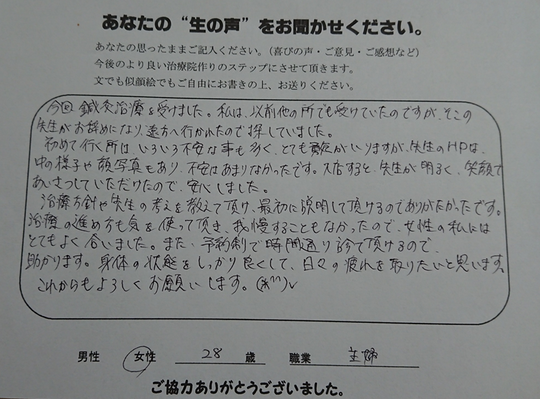 あなたの“生の声”をお聞かせください。
あなたの思ったままご記入ください。(喜びの声・ご意見・ご感想など)
今後のより良い治療院作りのステップにさせて頂きます。
文でも似顔絵でもご自由にお書きの上、お送りください。
今回鍼灸治療を受けました。私は、以前他の所でも受けていたのですが、そこの
先生がお辞めになり、遠方へ行かれたので探していました。
初めて行く所は、いろいろ不安な事も多く、とても勇気がいりますが、先生のHPは、
中の様子や顔写真もあり、不安はあまりなかったです。入店すると、先生が明るく、笑顔で
あいさつしていただけたので、安心しました。
治療方針や先生の考えを教えて頂け、最初に説明して頂けるのでありがたかったです。
治療の進め方も気を使って頂き、我慢することもなかったので、女性の私には
とてもよく合いました。また、予約制で時間通り診て頂けるので、
助かります。身体の状態をしっかり良くして、日々の疲れを取りたいと思います。
これからもよろしくお願いします。(*^^)v
男性 女性 28 歳 職業 主婦
ご協力ありがとうございました。